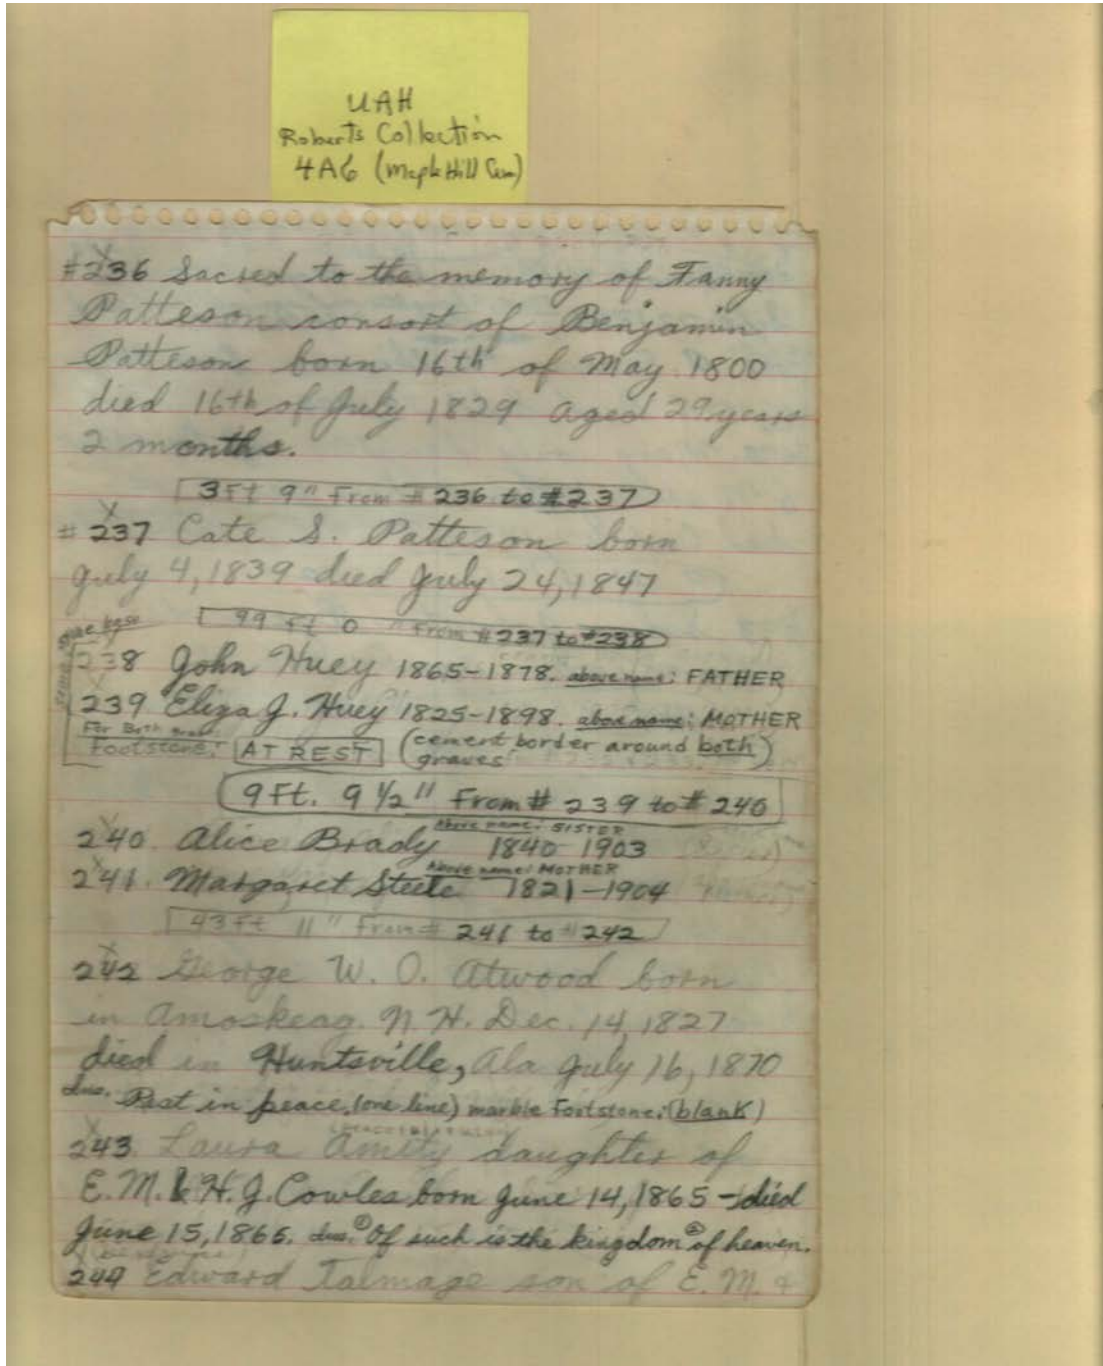 UAH
Roberts Collection
4A6 (Maple Hill Cem)
#236 Sacred to the memory of Fanny
Patteson consort of Benjamin
Patteson born 16th of May 1800
died 16th of July 1829 aged 29 years
2 months.
3 Ft 9" From #236 to #237
#237 Cate S. Patteson born
July 4, 1839 died July 24, 1847
99 Ft 0" From #237 to #238
base
238 John Huey 1865-1878. above name: FATHER
239 Eliza J. Huey 1825-1898. above name: MOTHER
For Both
Footstone: AT REST (cement border around both
graves)
9 Ft. 9 1/2" From # 239 to # 240
Above name: SISTER
240 Alice Brady 1840 1903
Above name: MOTHER
241. Margaret Steele 1821-1904
43 Ft 11" From # 241 to #242
242 George W. O. Atwood born
in Amoskeag. N H. Dec. 14, 1827
died in Huntsville, Ala July 16, 1870
Rest in peace. (one line) marble Footstone: (blank)
243. Laura Amity daughter of
E. M. & H. J. Cowles born June 14, 1865 - died
June 15, 1865. ① Of such is the kingdom ② of heaven.
244 Edward Talmage son of E. M. &